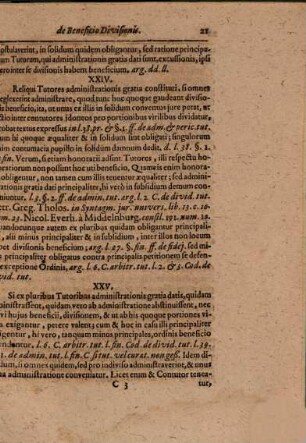 de Beneficio Divisionis. 21
postulaverint, in solidum quidem obligantur, sed ratione principa-
lium Tutorum, qui administrationis gratia dati sunt, excussionis, ipsi
vero inter se divisionis habent beneficium, arg. dd. ll.
XXIV.
Reliqui Tutores administrationis gratia constituti, si omnes
neglexerint administrare, quod tunc hoc quoque gaudeant divisio-
nis beneficio, ita, ut eum ex illis in solidum convenit jure petat, ut
actio inter contutores idoneos pro portionibus virilibus dividatur,
probat textus expressus in l. 38. pr. & §. 1. ff. de adm. & peric. tut.
cum hi quoque æqualiter & in solidum sint obligati; singulorum
enim contumacia pupillo in solidum damnum dedit, d. l. 38. §. 1.
in fin. Verum, si etiam honorarii adsint Tutores, illi respectu ho-
norariorum non possunt hoc uti beneficio, Quamvis enim honora-
rii obligentur, non tamen cum illis tenentur æqualiter; sed admi-
nistrationis gratia dati principaliter, hi vero in subsidium demum con-
veniuntur, l. 3. §. 2. ff. de admin. tut. arg. l. 2. C. de divid. tut.
Petr. Greg. Tholos. in Syntagm. jur. univers. lib. 13. c. 10.
num. 23. Nicol. Everh. à Middelburg. consil. 191. num. 10.
quandocunque autem ex pluribus quidam obligantur principali-
ter, alii minus principaliter & in subsidium, inter illos non locum
habet divisionis beneficium (arg. l. 27. §. fin. ff. de fidej. sed mi-
nus principaliter obligatus contra principalis petitionem se defen-
dit exceptione Ordinis, arg. l. 6. C. arbitr. tut. l. 2. & 3. Cod. de
divid. tut.
XXV.
Si ex pluribus Tutoribus administrationis gratia datis, quidam
administrassent, quidam vero ab administratione abstinuissent, nec
hi hujus beneficii, divisionem, & ut ab his quoque portiones vi-
riles exigantur, petere valent; cum & hoc in casu illi principaliter
obligentur, hi vero, tanquam minus principales, ordinis beneficio
l. 6. C. arbitr. tut. l. fin. Cod. de divid. tut. l. 39.
de admin. tut. l. fin. C. si tut. vel curat. non gess. Idem di-
cendum, si omnes quidem, sed pro indiviso administraverint, & unus
ex administratione conveniatur. Licet enim & Contutor tenea-
C 3 tur,